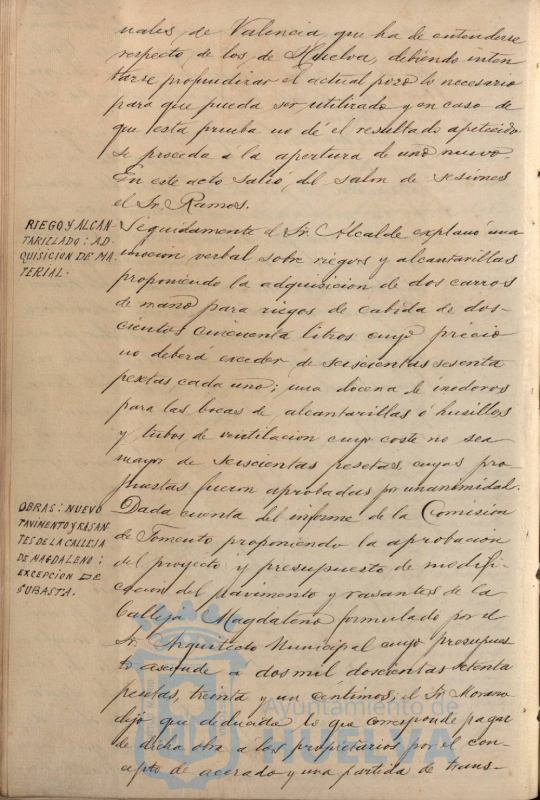 nuales, de Valencia, que ha de entenderse
respecto de los de Huelva, debiendo inten
tarse profundizar el actual pozo lo necesario
para que pueda ser utilizado y en caso de
que esta prueba no dé el resultado apetecido
se proceda á la apertura de uno nuevo.
En este acto salió del salon de sesiones
el Sr. Ramos.
RIEGO Y ALCAN-
TARILLADO: AD-
QUISICION DE MA
TERIAL.
Seguidamente el Sr. Alcalde explanó una
mocion verbal sobre riegos y alcantarillas
proponiendo la adquisicion de dos carros
de mano para riegos de cabida de dos-
cientos cincuenta litros cuyo precio
no deberá exceder de seiscientas sesenta
pesetas cada uno; una docena de inodoros
para las bocas de alcantarillas ó husillos
y tubos de ventilacion cuyo coste no sea
mayor de seiscientas pesetas, cuyas pro
puestas fueron aprobadas por unanimidad.
OBRAS: NUEVO
PAVIMENTO Y RASAN
TES DE LA CALLEJA
DE MAGDALENO:
EXCEPCION DE
SUBASTA.
Dada cuenta del informe de la Comision
de Fomento proponiendo la aprobacion
del proyecto y presupuesto de modifi-
cacion del pavimento y rasantes de la
Calleja Magdaleno formulado por el
Sr. Arquitecto Municipal cuyo presupues
to asciende a dos mil doscientas setenta
pesetas, treinta y un céntimos; el Sr. Morano
dijo que deducida lo que corresponde pagar
de dicha obra a los propietarios por el con-
cepto de acerado y una partida de trans-
Ayuntamiento de
HUELVA